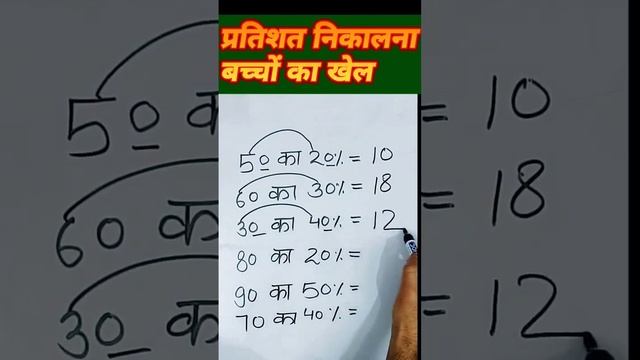 प्रतिशत निकालना
बच्चों का खेल
50 का 20% = 10
60 का 30% = 18
30 का 40% = 12
80 का 20% =
90 का 50% =
70 का 40% =